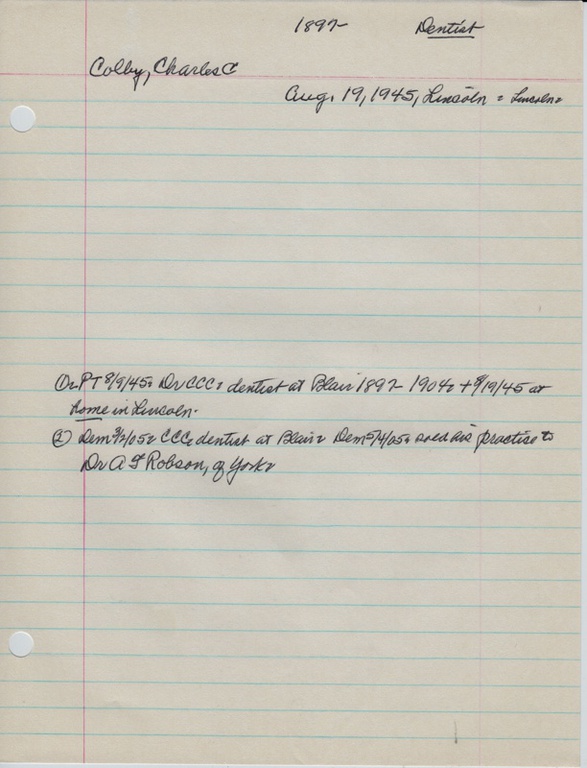 1897- Dentist
Colby, Charles C
Aug. 19, 1945, Lincoln = Lincoln=
① PT 8/9/45= Dr CCC= dentist at Blair 1897- 1904= + 8/19/45 at
home in Lincoln.
② Dem 3/2/05= CCC= dentist at Blair= Dem 5/4/05= sold his practise to
Dr A F Robson, of York=